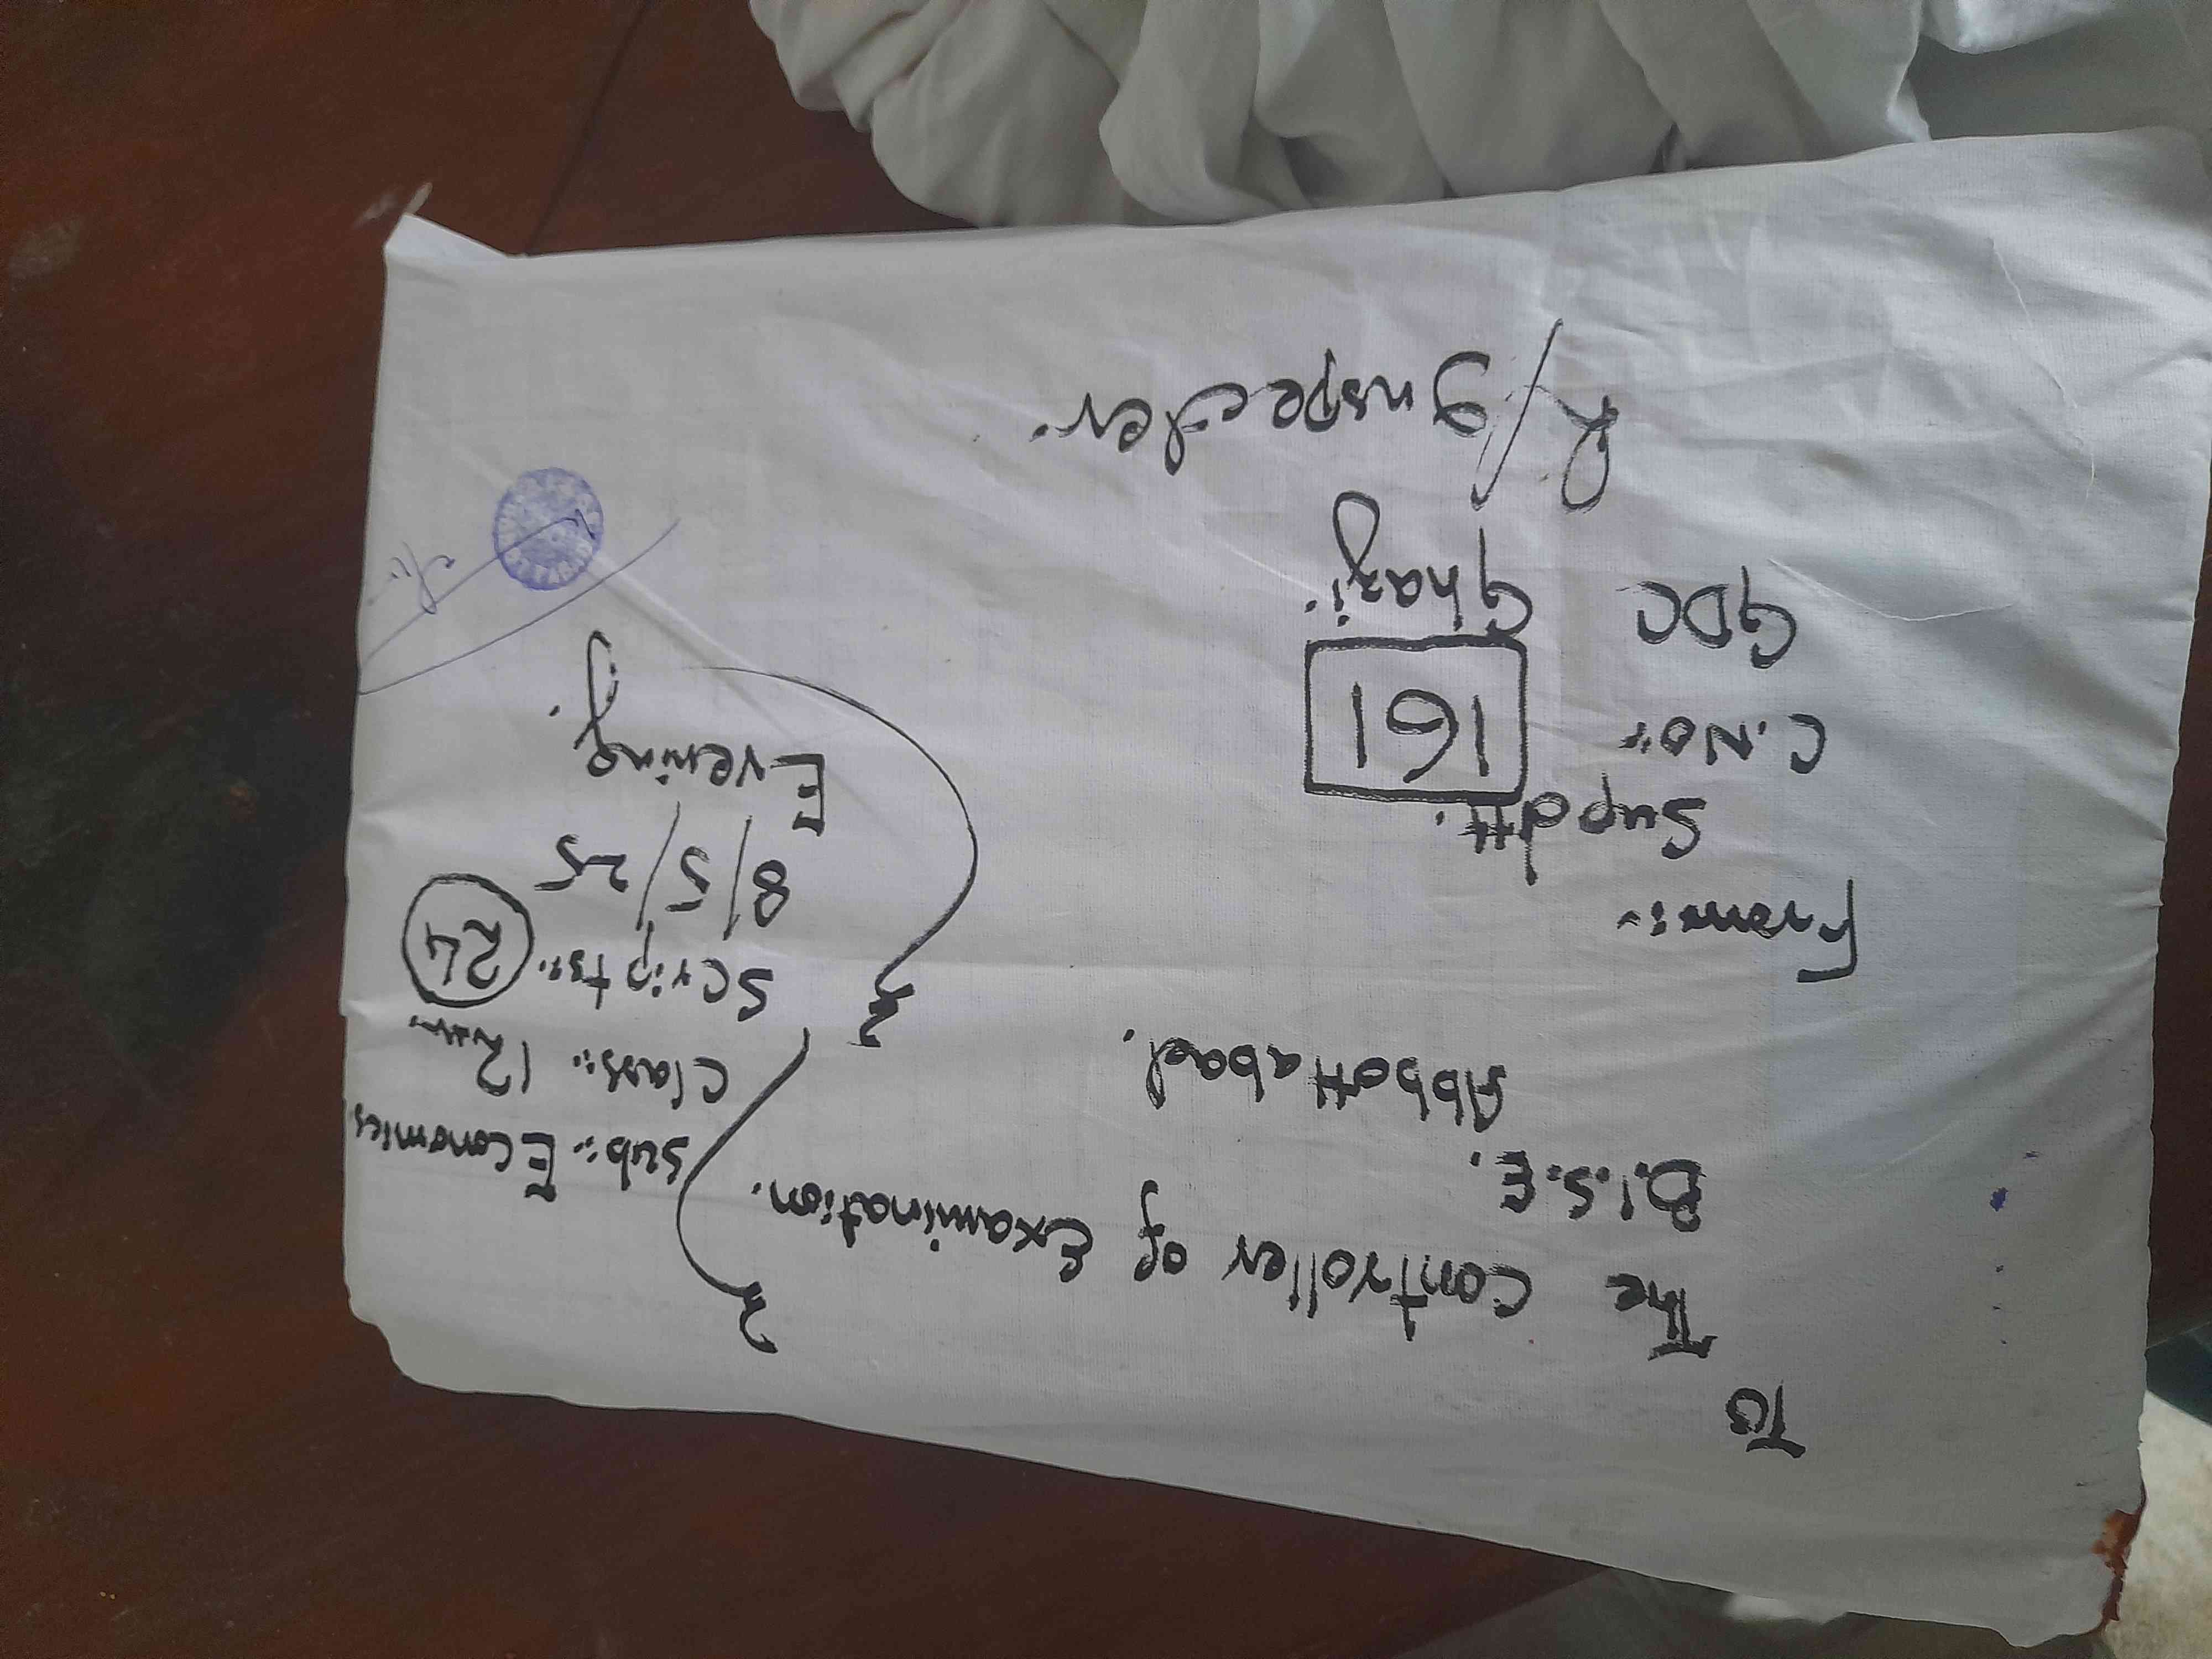 To
The Controller of Examination.
B.I.S.E.
Abbottabad.
Sub:- Economics
Class:- 12th
Scripts:- 24
8/5/25
Evening.
From:-
Supdtt.
C.No:- 161
GDC Ghazi.
R/Inspector.